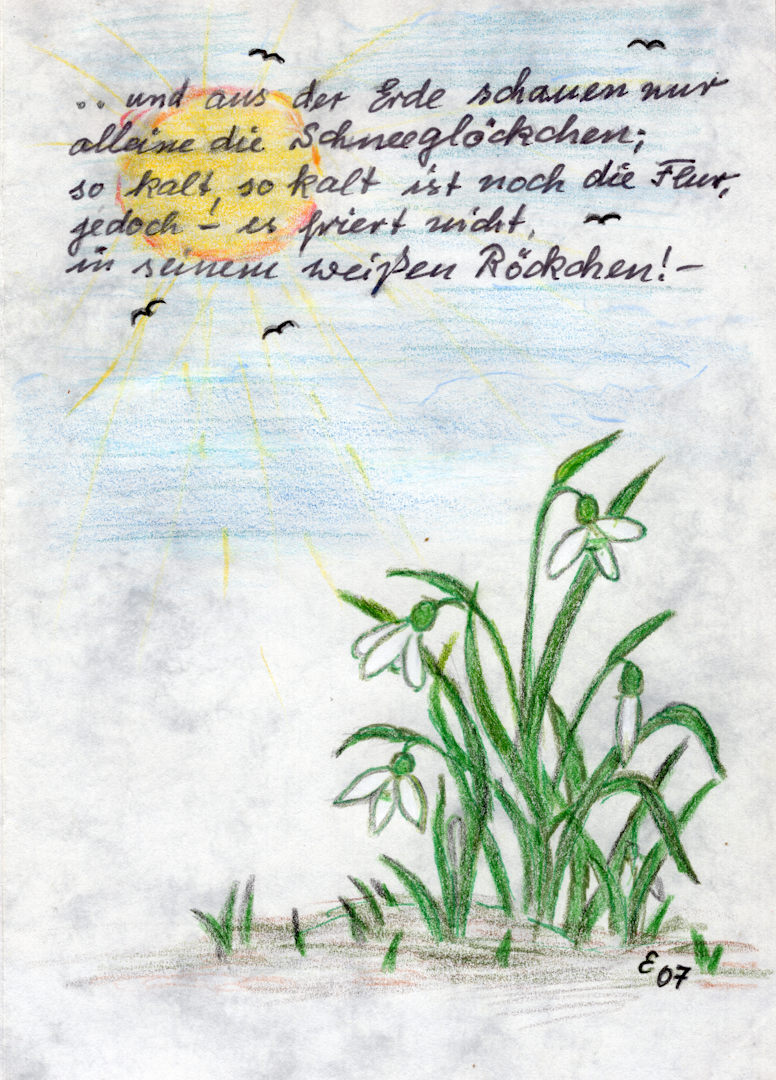 .. und aus der Erde schauen nur
alleine die Schneeglöckchen;
so kalt, so kalt ist noch die Flur,
jedoch – es friert nicht,
in seinem weißen Röckchen! –
E 07